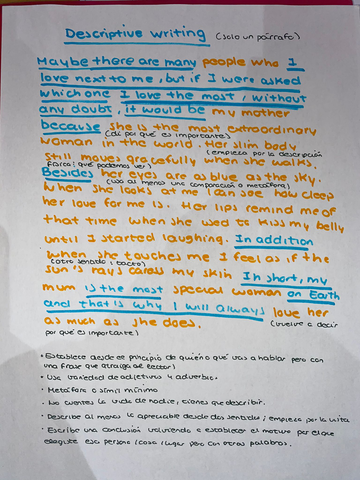 Descriptive writing (solo un párrafo)
Maybe there are many people who I
love next to me, but if I were asked
which one I love the most, without
any doubt, it would be my mother
because she is the most extraordinary
(di por qué es importante)
woman in the world. Her slim body
(empieza por la descripción
still moves gracefully when she walks.
física: qué podemos ver)
Besides her eyes are as blue as the sky.
(usa al menos una comparación o metáfora)
When she looks at me I can see how deep
her love for me is. Her lips remind me of
that time when she used to kiss my belly
until I started laughing. In addition
when she touches me I feel as if the
(otro sentido, tacto)
sun's rays caress my skin In short, my
mum is the most special woman on Earth
and that is why I will always love her
as much as she does. (vuelve a decir
por qué es importante)
• Establece desde el principio de quién o qué vas a hablar pero con
una frase que atraiga al lector)
• Usa variedad de adjetivos y adverbios.
• Metáfora o símil mínimo
• No cuentes la vida de nadie, tienes que describir.
• Describe al menos lo apreciable desde dos sentidos; empieza por la vista
• Escribe una conclusión volviendo a establecer el motivo por el que
elegiste esa persona/cosa/lugar pero con otras palabras.